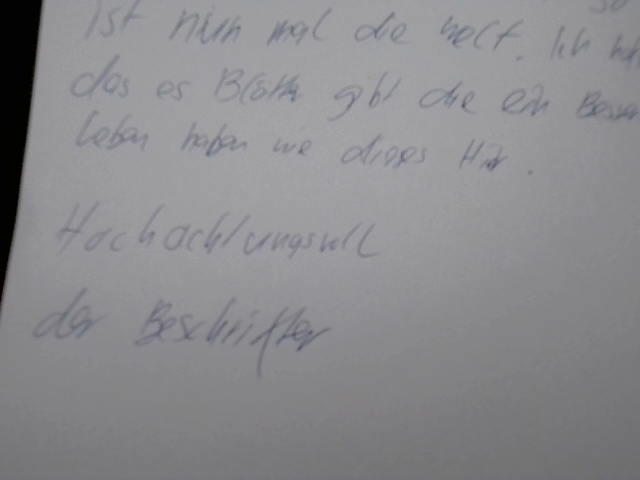 so
ist nun mal die Welt. Ich
das es Blätter gibt die ein
leben haben wie dieses Hir.
Hochachtungsvoll
der Beschrifter